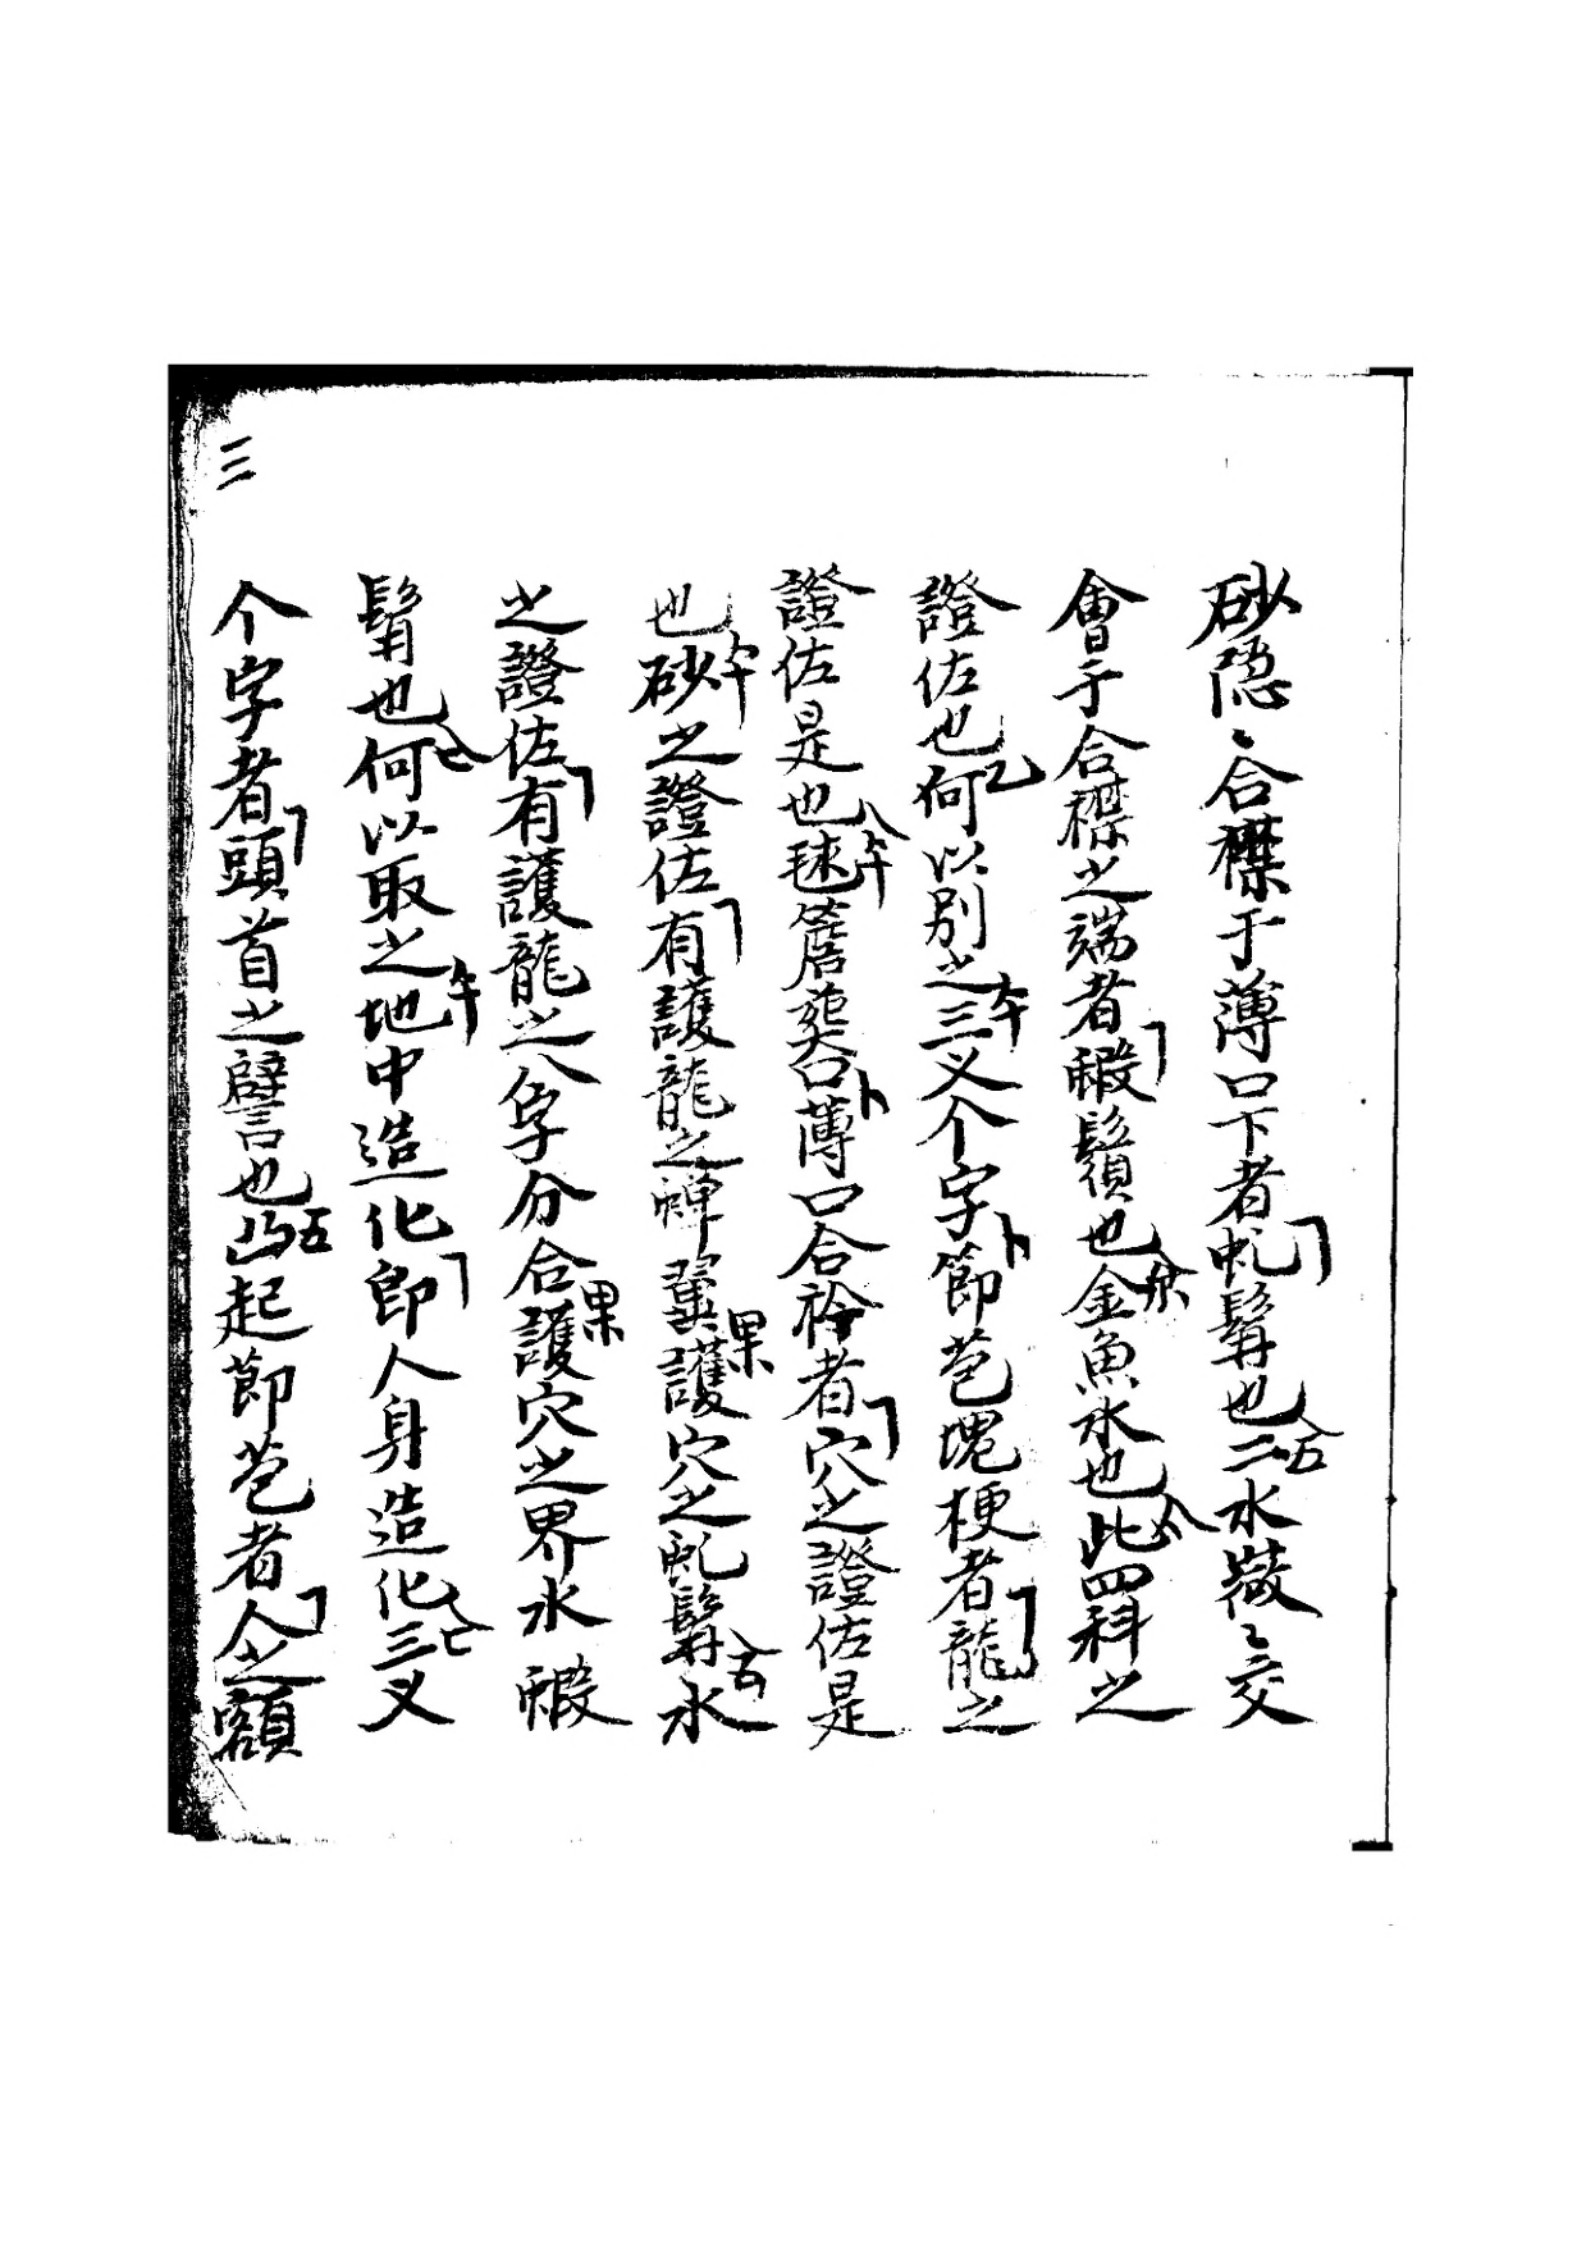 砂隠〻合襟于薄口下者𠃍虬髯也五二水微〻交
會于合襟之端者𠃍蝦鬚也金魚水也此四科之
證佐也何以別之三叉个字卜節苞塊梗者𠃍龍之
證佐是也毬簷葬口卜薄口合衿者𠃍穴之證佐是
也砂之證佐𠃍有護龍之蟬翼果護穴之虬髯水
之證佐𠃍有護龍之八字分合果護穴之界水蝦
鬚也何以取之地中造化𠃍即人身造化三叉
个字者𠃍頭首之譬也五凸起節苞者𠃍人之額
三